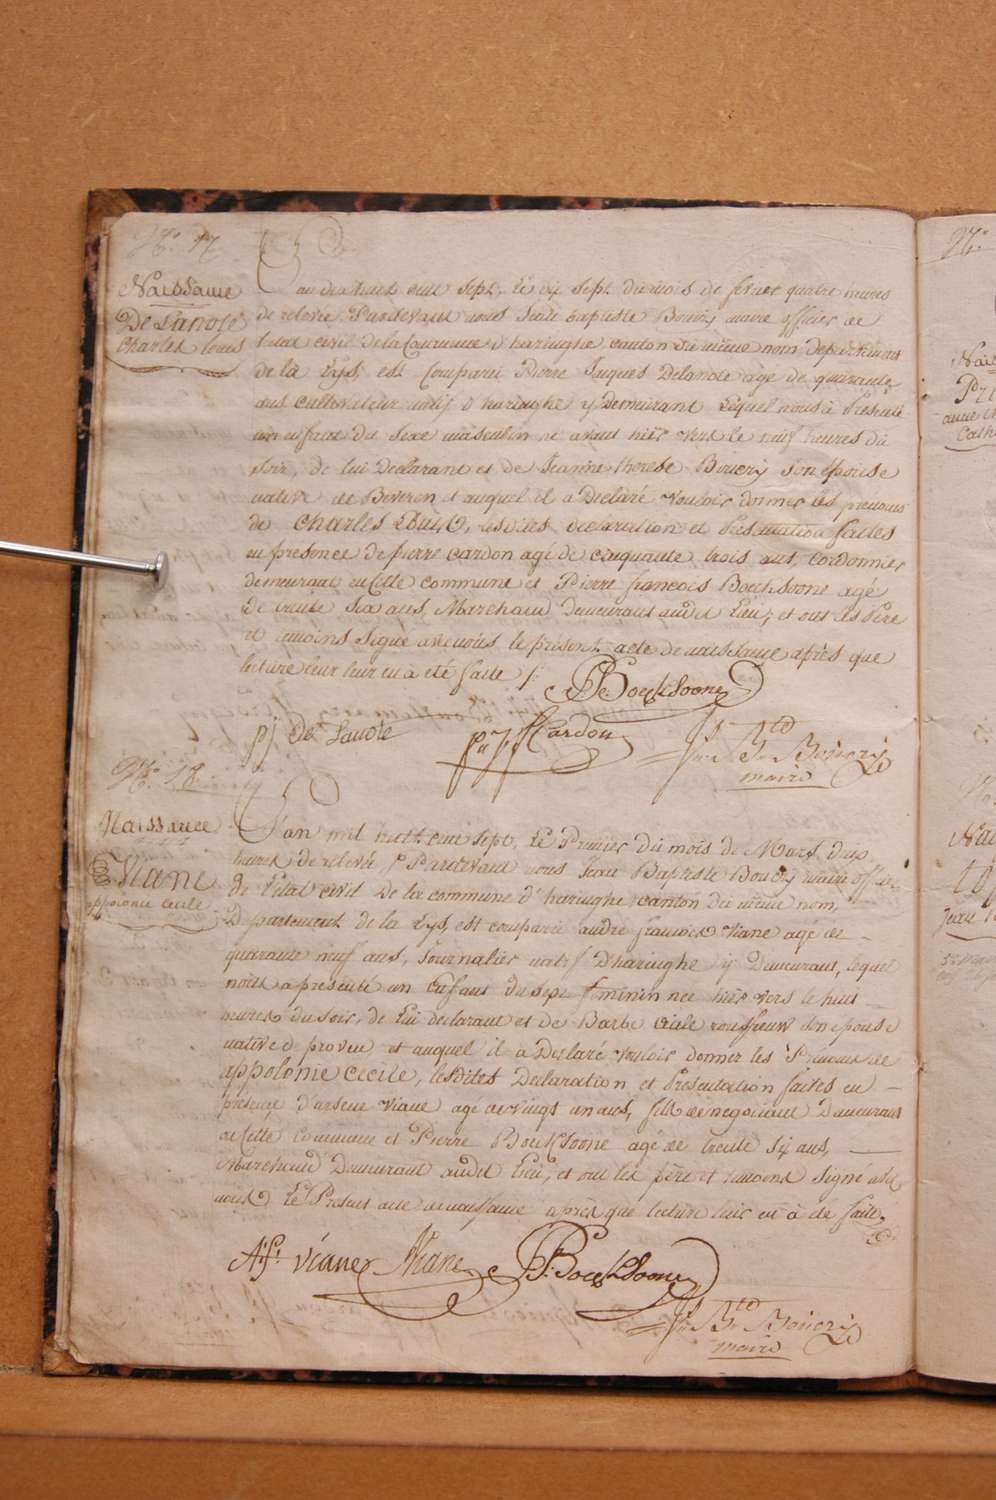 N.° 17
Naissance
De Lanote
Charles Louis
L'an dix huit cent sept, le vingt sept du mois de fevrier quatre heures
de relevée, Pardevant nous Jean baptiste Bouery maire officier de
l'etat civil de la Commune d'haringhe canton du même nom, departement
de la Lys, est Comparu Pierre Jacques Delanote agé de quarante
ans cultivateur natif d'haringhe y demeurant Lequel nous à Presenté
un enfant du Sexe masculin né avant hier vers le neuf heures du
soir, de lui Declarant et de Jeanne therese Bouery son épouse
native de Beveren et auquel il a Declaré vouloir donner les prenoms
de Charles Louis, lesdites declaration et Presentation faites
en presence de pierre cardon agé de cinquante trois ans, Cordonnier
demeurant en cette commune et Pierre francois Bouchsoone agé
De trente six ans, Marchand demeurant audit Lieu, et ont les Pere
et temoins signé avec nous le present acte de naissance après que
lecture leur en a été faite /.
PF Bouchsoone
pj De Lanote
Cardon
Jn. Bte Bouery
maire
N.° 18
Naissance
Viane
appolonie cecile
L'an mil huit cent sept, Le Premier du mois de Mars, dix
heures de relevée, Pardevant nous Jean Baptiste Bouery maire officier
de l'etat civil De la commune d'haringhe canton du même nom,
Departement de la Lys, est comparu andré francois Viane agé de
quarante neuf ans, Journalier natif D'haringhe y Demeurant, lequel
nous a presenté un Enfant du sexe feminin née hier vers le huit
heures du soir, de Lui declarant et de Barbe Cicile son epouse
native d proven, et auquel il a Declaré vouloir donner les Prenoms de
appolonie Cecile, lesdites Declaration et Presentation faites en
presence d'arsene Viane agé de vingt un ans, fils de negociant Demeurant
en cette commune et Pierre Bouchsoone agé de trente six ans,
Marchand Demeurant audit Lieu, et ont les père et temoins signé avec
nous Le Present acte de naissance après que lecture leur en a été faite,
A. f. Viane Viane PF. Bouchsoone
Jn. Bte Bouery
maire
N.°